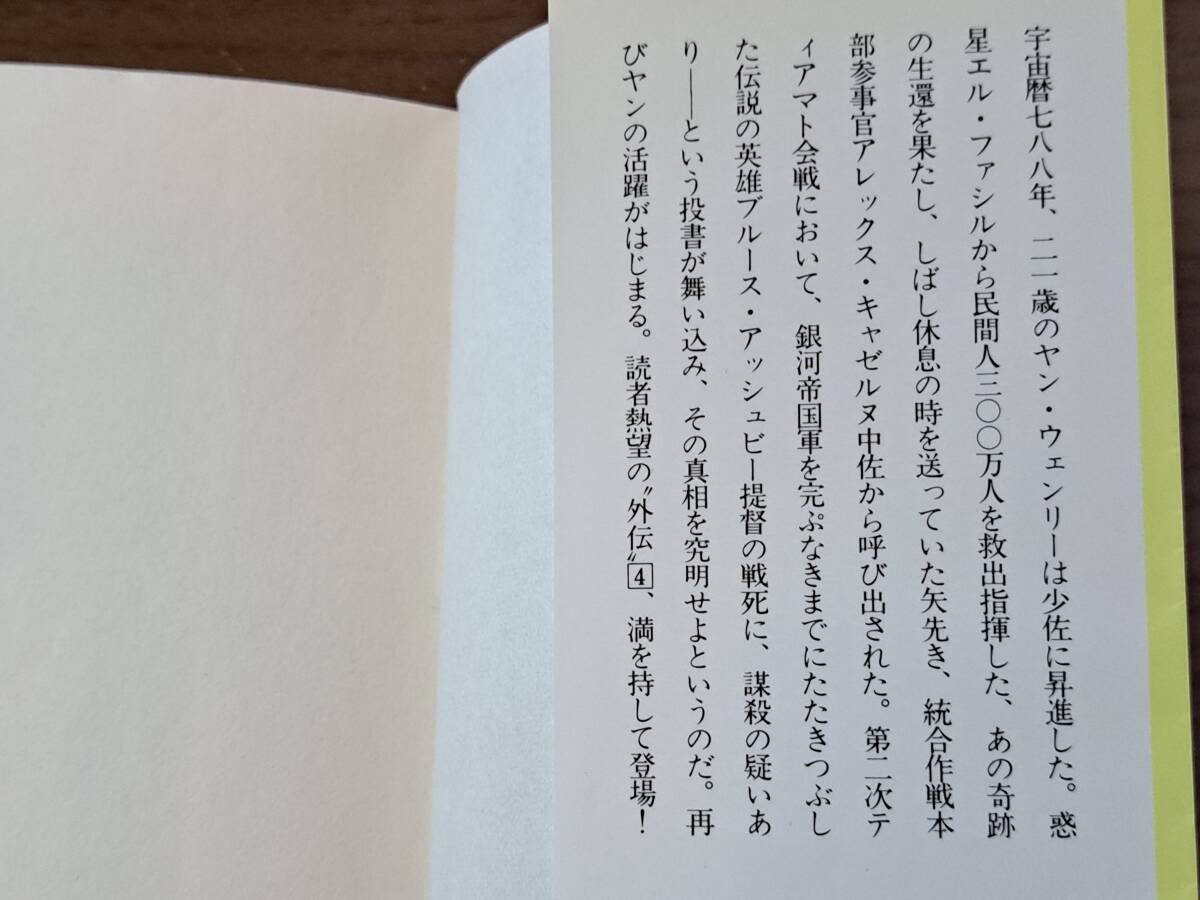 宇宙暦七八八年、二一歳のヤン・ウェンリーは少佐に昇進した。惑
星エル・ファシルから民間人三〇〇万人を救出指揮した、あの奇跡
の生還を果たし、しばし休息の時を送っていた矢先き、統合作戦本
部参事官アレックス・キャゼルヌ中佐から呼び出された。第二次テ
ィアマト会戦において、銀河帝国軍を完ぷなきまでにたたきつぶし
た伝説の英雄ブルース・アッシュビー提督の戦死に、謀殺の疑いあ
り――という投書が舞い込み、その真相を究明せよというのだ。再
びヤンの活躍がはじまる。読者熱望の〝外伝〟4、満を持して登場！